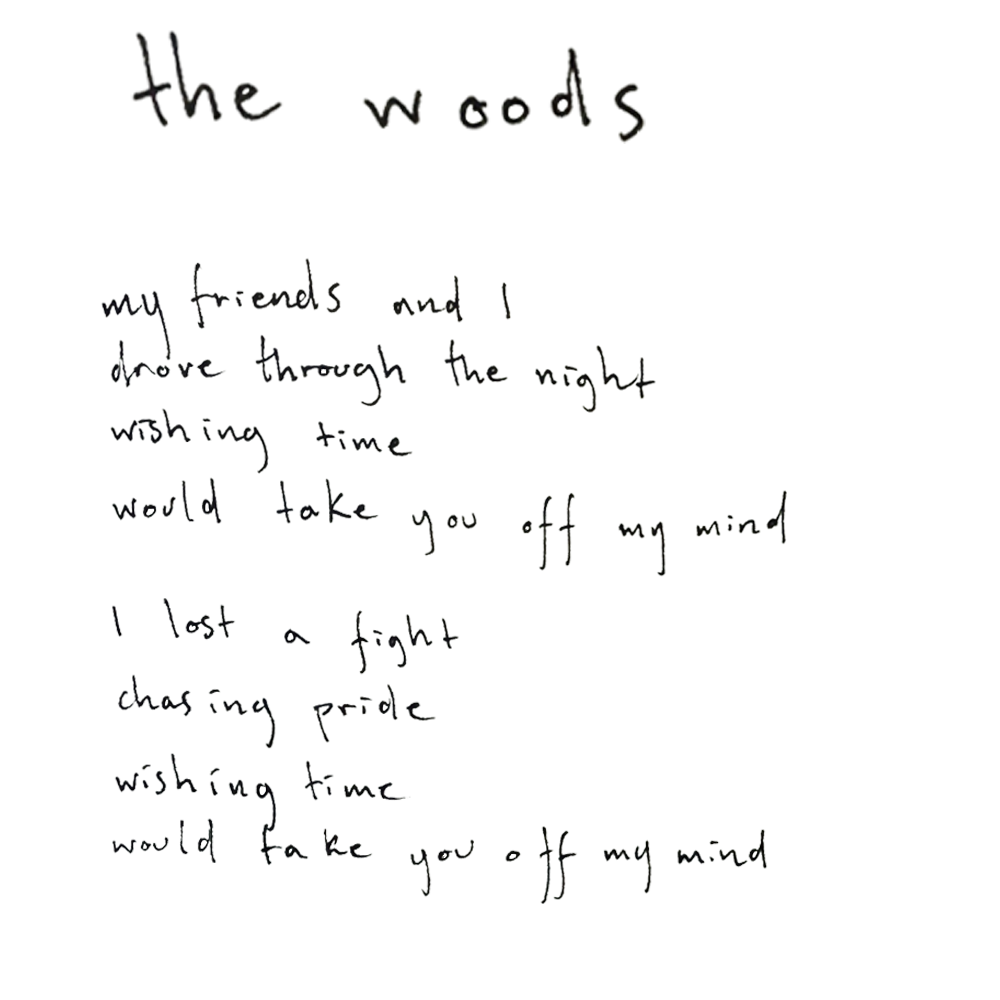 the woods
my friends and I
drove through the night
wishing time
would take you off my mind
I lost a fight
chasing pride
wishing time
would take you off my mind